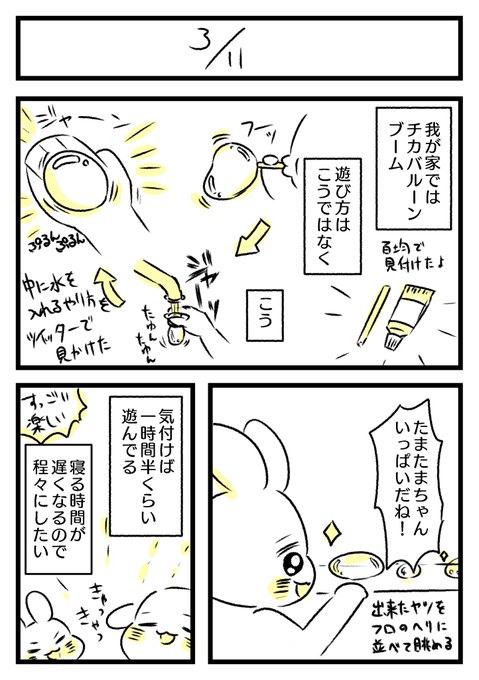 3/11
我が家では
チカバルーン
ブーム
百均で
見付けたよ
遊び方は
こうではなく
フーッ
こう
たゅんたゅん
ぷるんぷるん
中に水を
入れるやり方を
ツイッターで
見かけた
たまたまちゃん
いっぱいだね!
出来たヤツを
フロのヘリに
並べて眺める
気付けば
一時間半くらい
遊んでる
すっごい
楽しい
寝る時間が
遅くなるので
程々にしたい
きゃっきゃっ